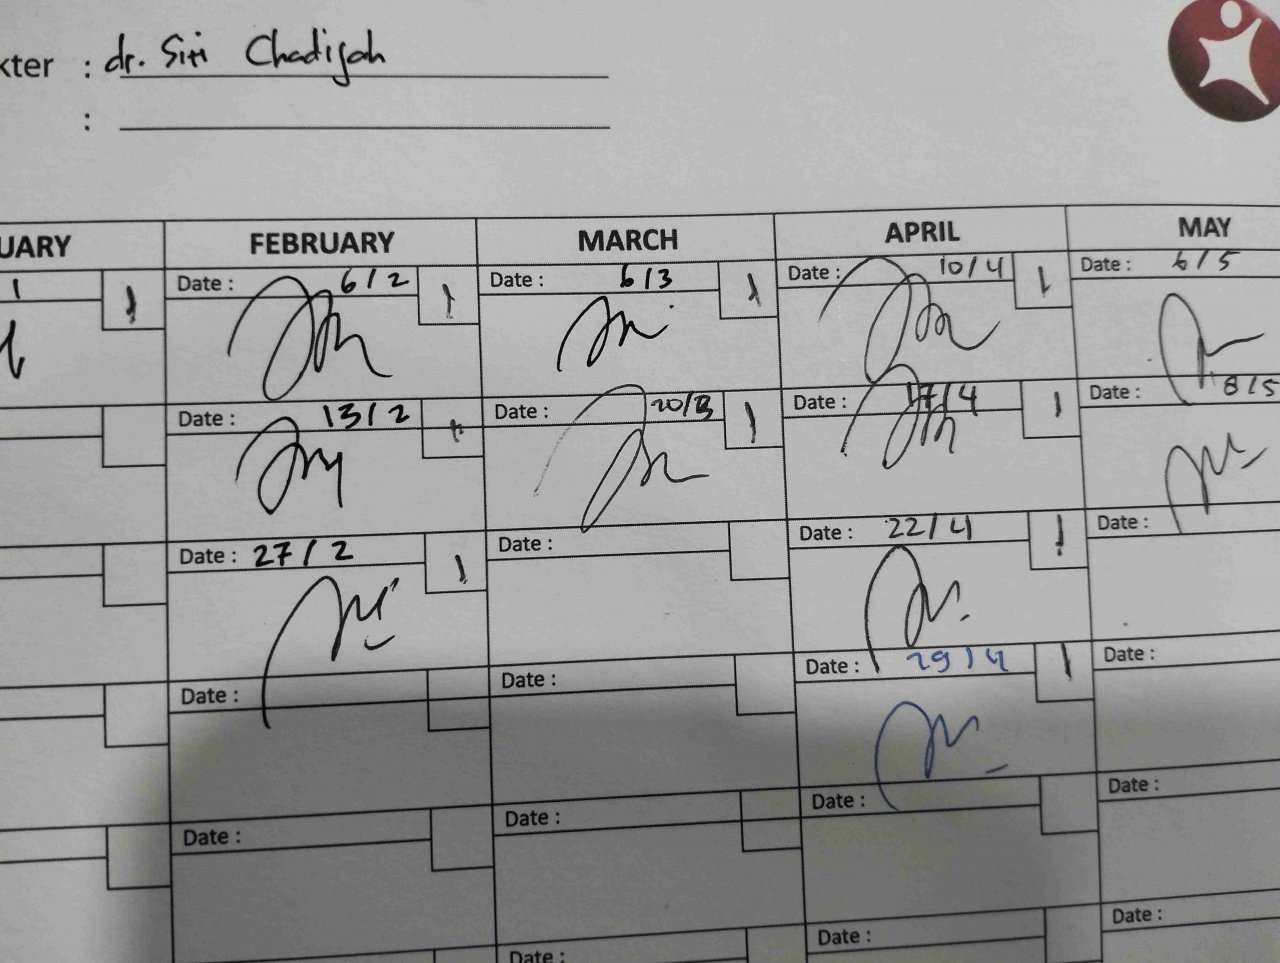 kter : dr. Siti Chadijah
:
UARY FEBRUARY MARCH APRIL MAY
1 1 Date : 6/2 1 Date : 6/3 1 Date : 10/4 1 Date : 6/5
Date : 13/2 Date : 20/3 1 Date : 17/4 1 Date : 8/5
Date : 27/2 1 Date : Date : 22/4 1 Date :
Date : Date : Date : 29/4 1 Date :
Date : Date : Date : Date :
Date : Date : Date :